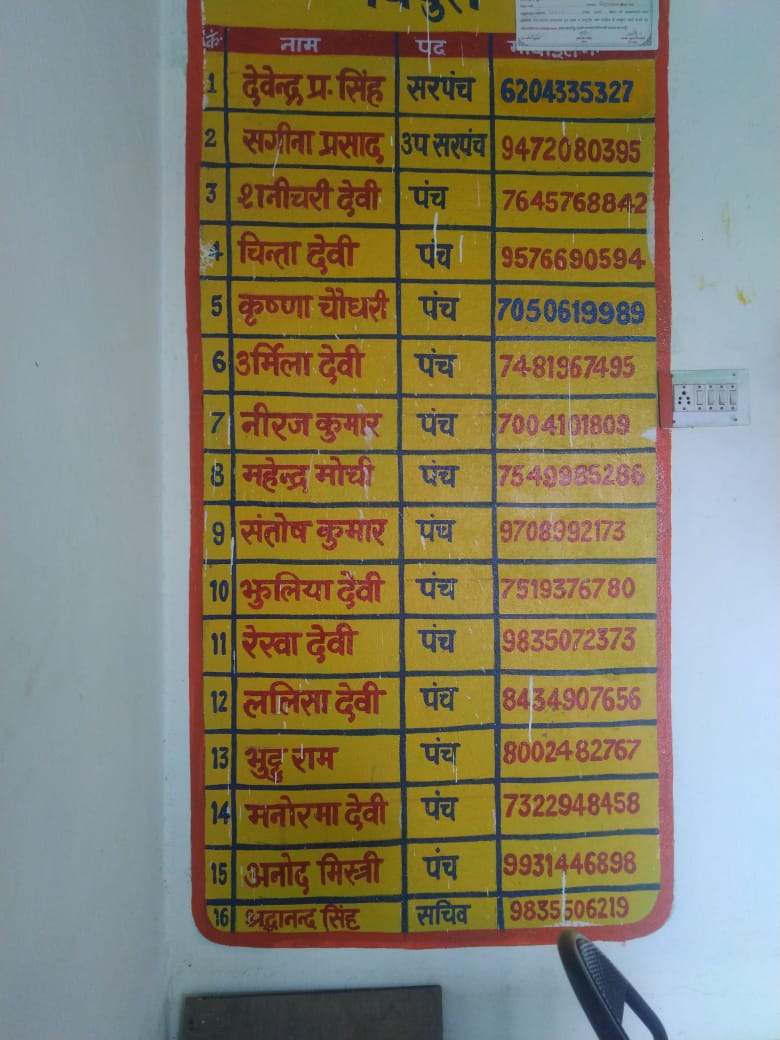 क्रं. नाम पद मोबाइल नं.
1 देवेन्द्र प्र. सिंह सरपंच 6204335327
2 सगीना प्रसाद उप सरपंच 9472080395
3 शनीचरी देवी पंच 7645768842
4 चिन्ता देवी पंच 9576690594
5 कृष्णा चौधरी पंच 7050619989
6 उर्मिला देवी पंच 7481967495
7 नीरज कुमार पंच 7004101809
8 महेन्द्र मोची पंच 7549985286
9 संतोष कुमार पंच 9708992173
10 झुलिया देवी पंच 7519376780
11 रेखा देवी पंच 9835072373
12 ललिसा देवी पंच 8434907656
13 भुट्टू राम पंच 8002482767
14 मनोरमा देवी पंच 7322948458
15 अनोद मिस्त्री पंच 9931446898
16 श्रद्धानन्द सिंह सचिव 9835506219